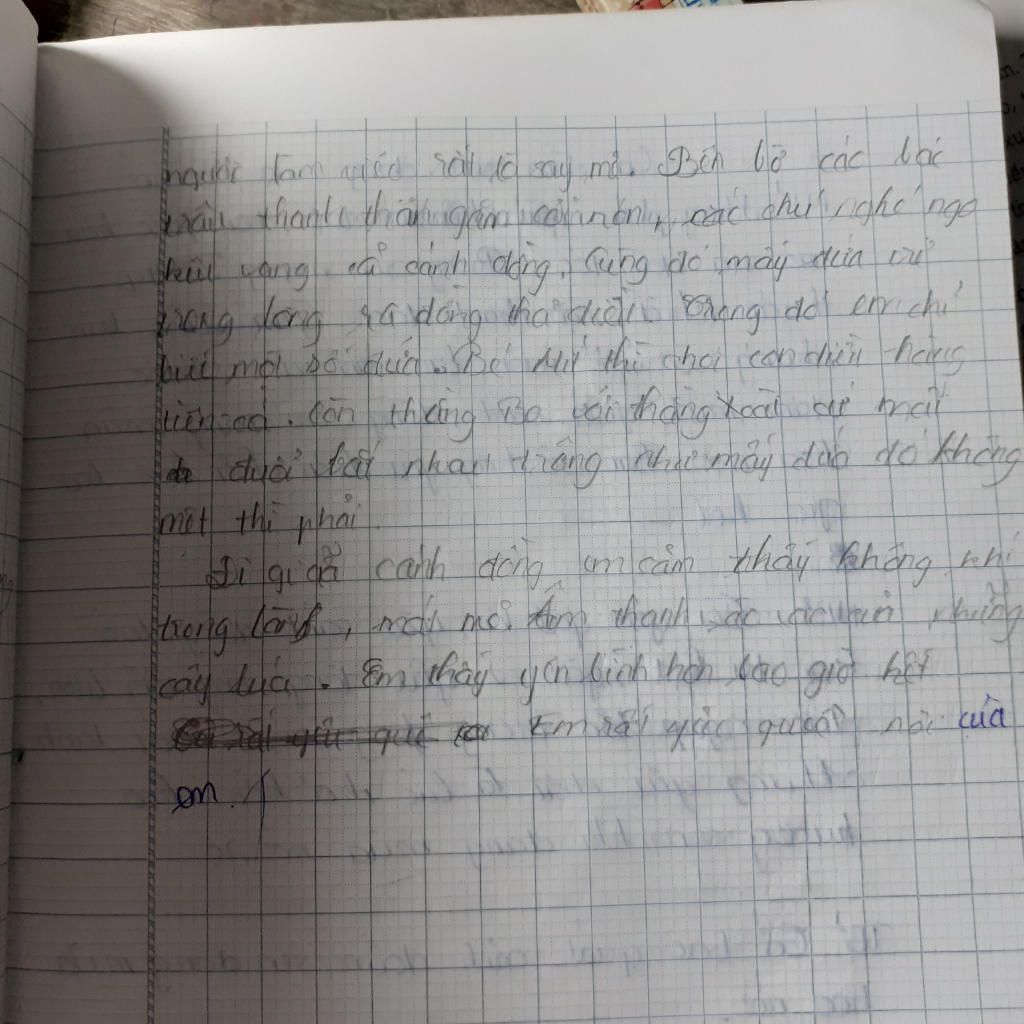 người làm việc rất là say mê. Bên bờ các bác
trâu thanh thản gặm cỏ non, các chú nghé ngo
vang cả cánh đồng. Cùng đó mấy đứa
trong làng ra đồng thả diều. Trong đó em chỉ
biết một số đứa. Bé thì chơi con diều hàng
tiên cá. Còn thằng Bo với thằng Xoài cứ mải
đuổi bắt nhau trông như mấy đứa đó không
mệt thì phải.
Đi giữa cánh đồng em cảm thấy không khí
trong lành, mát mẻ. Âm thanh xào xạc của những
cây lúa. Em thấy yên bình hơn bao giờ hết
Em rất yêu quê nội của
em.